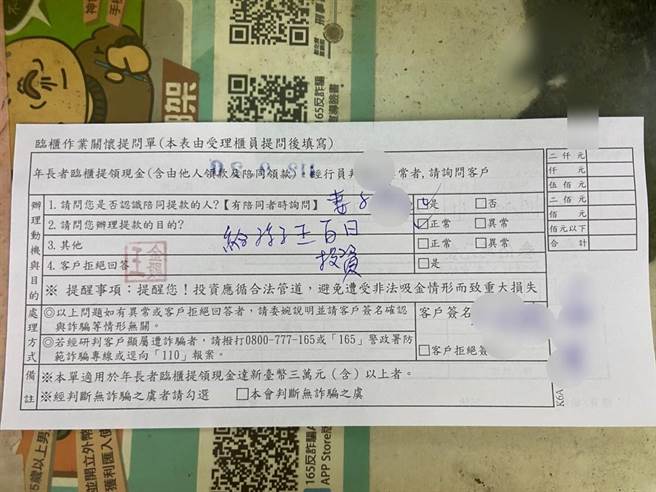 神
手
綁架
165反詐騙
臨櫃作業關懷提問單(本表由受理櫃員提問後填寫)
年長者臨櫃提領現金(含由他人領款及陪同領款)經行員判
常者,請詢問客戶
辦理動機與目的
1.請問您是否認識陪同提款的人?【有陪同者時詢問】 妻子 ☑是 □否
2.請問您辦理提款的目的? ☑正常 □異常
給孫子百日
3.其他 □正常 □異常
投資
4.客戶拒絕回答 □是
※ 提醒事項:提醒您!投資應循合法管道,避免遭受非法吸金情形而致重大損失
處理方式
◎以上問題如有異常或客戶拒絕回答者,請委婉說明並請客戶簽名確認
與詐騙等情形無關。
◎若經研判客戶顯屬遭詐騙者,請撥打0800-777-165或「165」警政署防
範詐騙專線或逕向「110」報案。
客戶簽名
□客戶拒絕簽
備註
※本單適用於年長者臨櫃提領現金達新臺幣三萬元(含)以上者。
※經判斷無詐騙之虞者請勾選 □本會判斷無詐騙之虞
二仟元
仟元
伍佰元
二佰元
佰元
佰元以下
合計
K6A
5歲以上男
並開立外幣
獲利匯入使
165反詐騙A
App Store版